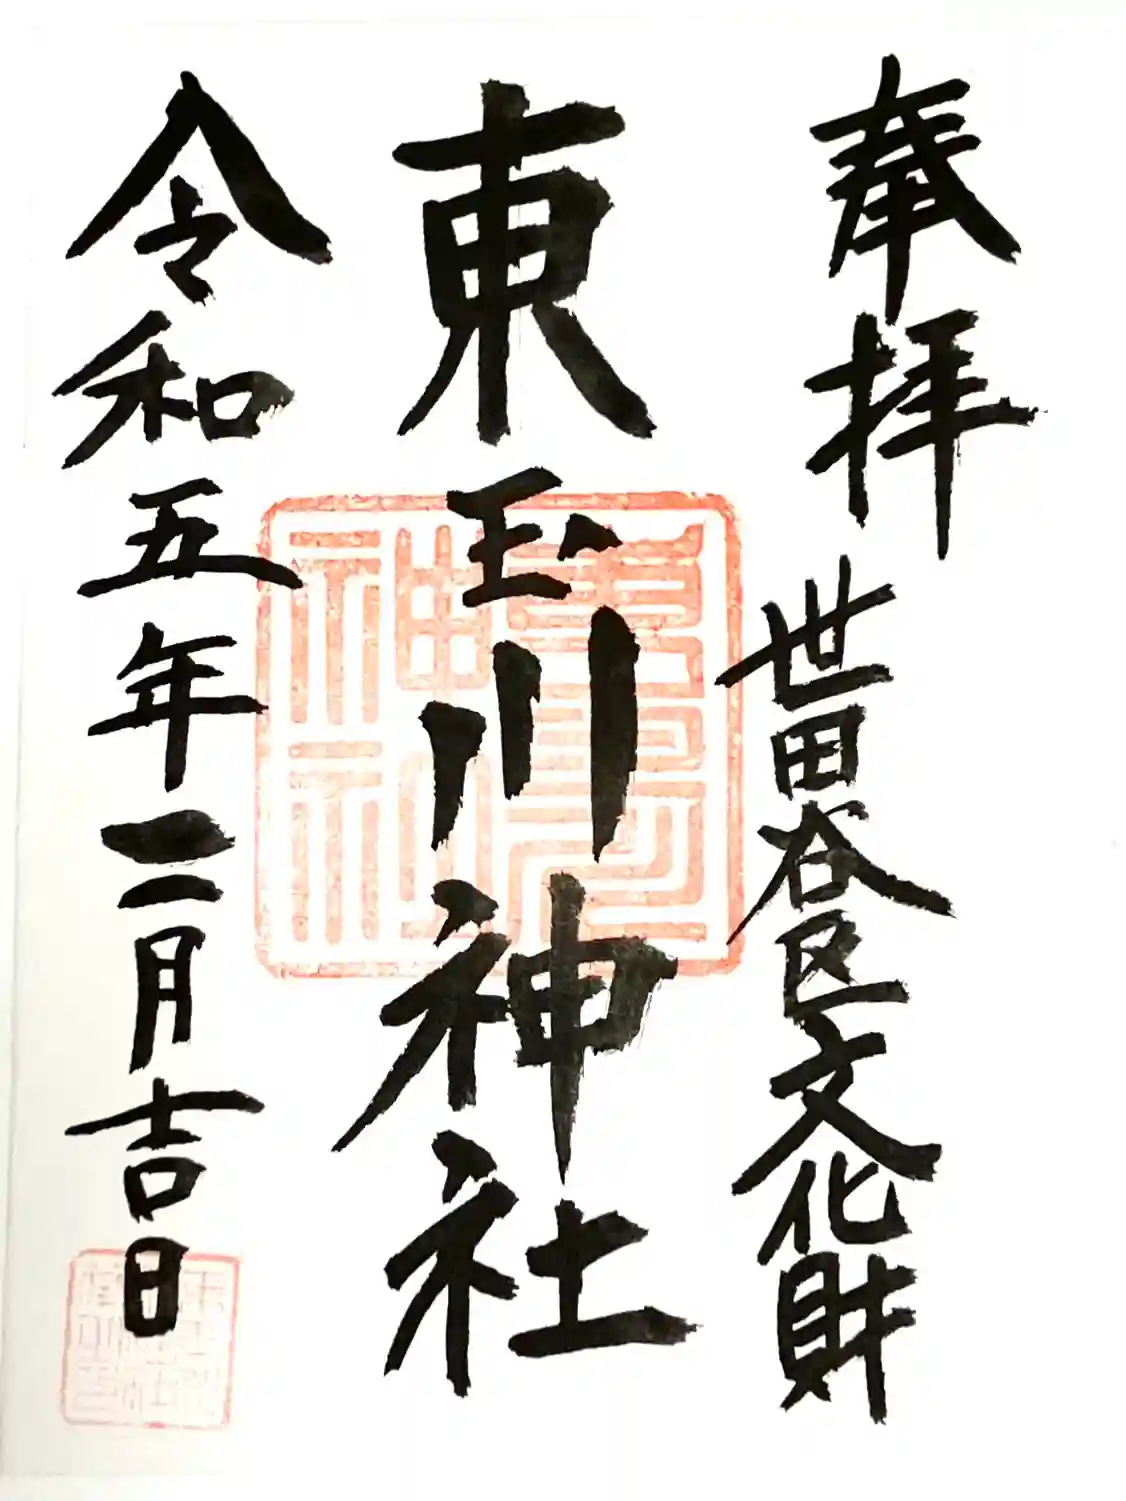 奉拝
世田谷区文化財
東玉川神社
令和五年二月吉日